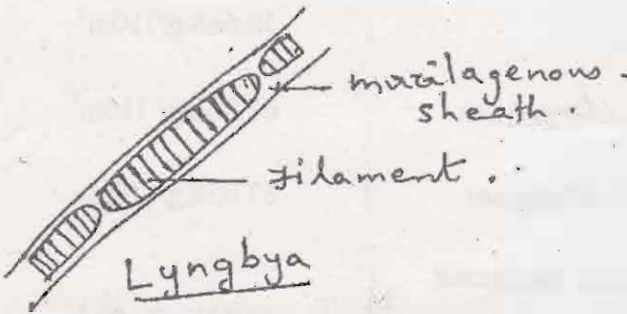 mucilagenous
sheath.
Filament.
Lyngbya